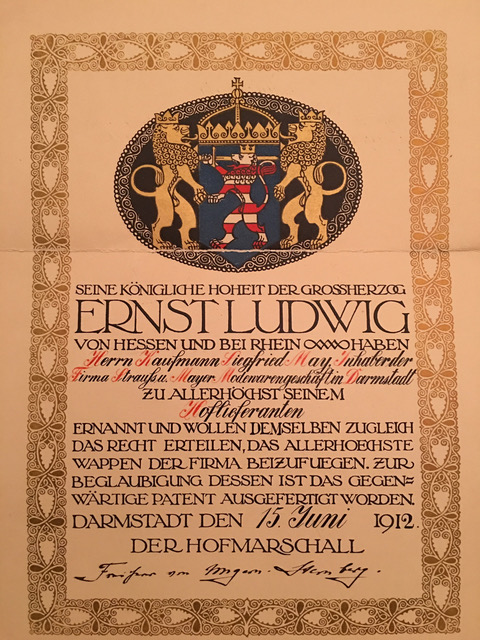 SEINE KÖNIGLICHE HOHEIT DER GROSSHERZOG
ERNST LUDWIG
VON HESSEN UND BEI RHEIN HABEN
Herrn Kaufmann Siegfried May, Inhaber der
Firma Strauß u. Mayer Modewarengeschäft in Darmstadt
ZU ALLERHÖCHST SEINEM
Hoflieferanten
ERNANNT UND WOLLEN DEMSELBEN ZUGLEICH
DAS RECHT ERTEILEN, DAS ALLERHOECHSTE
WAPPEN DER FIRMA BEIZUFUEGEN. ZUR
BEGLAUBIGUNG DESSEN IST DAS GEGEN=
WÄRTIGE PATENT AUSGEFERTIGT WORDEN.
DARMSTADT DEN 15. Juni 1912.
DER HOFMARSCHALL
Freiherr von Ungern-Sternberg.